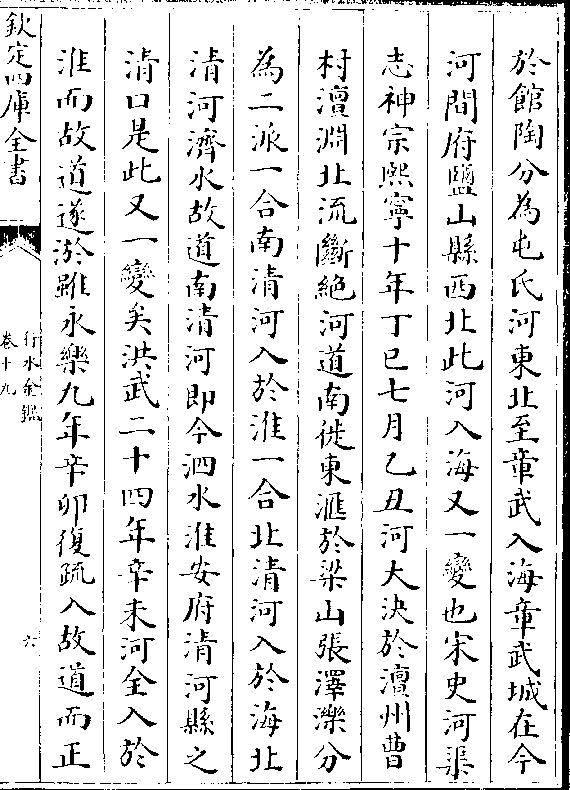 於館陶分為屯氏河東北至章武入海章武城在今
河間府鹽山縣西北此河入海又一變也宋史河渠
志神宗熙寧十年丁巳七月乙丑河大決於澶州曹
村澶淵北流斷絕河道南徙東滙於梁山張澤濼分
為二派一合南清河入於淮一合北清河入於海北
清河濟水故道南清河即今泗水淮安府清河縣之
清口是此又一變矣洪武二十四年辛未河全入於
淮而故道遂淤雖永樂九年辛卯復疏入故道而正
欽定四庫全書
行水金鑑
卷十九
六